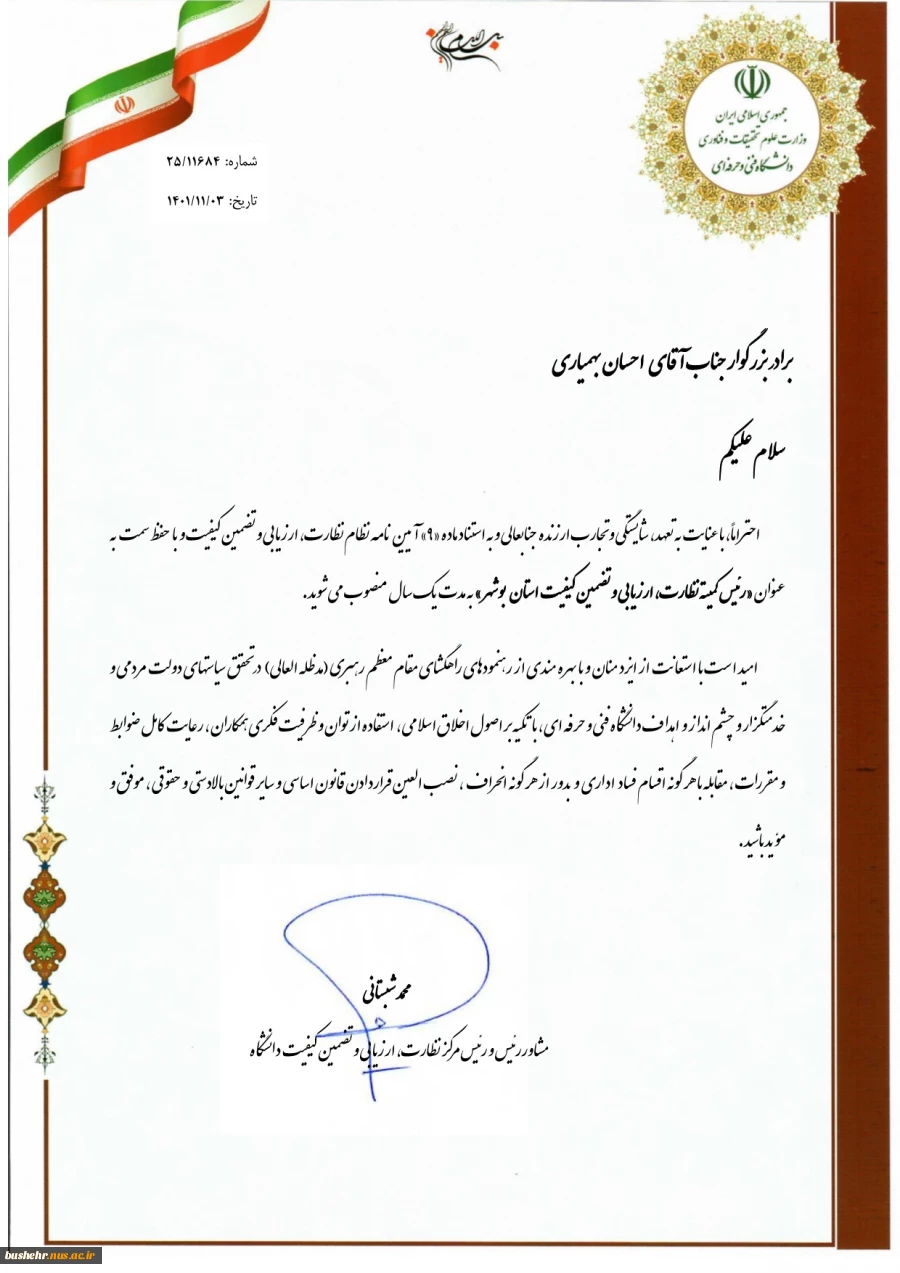 بسم الله الرحمن الرحیم
جمهوری اسلامی ایران
وزارت علوم تحقیقات و فناوری
دانشگاه فنی و حرفه‌ای
شماره: ۲۵/۱۱۶۸۴
تاریخ: ۱۴۰۱/۱۱/۰۳
برادر بزرگوار جناب آقای احسان بهمیاری
سلام علیکم
احتراماً، با عنایت به تعهد، شایستگی و تجارب ارزنده جنابعالی و به استناد ماده «۹» آیین نامه نظام نظارت، ارزیابی و تضمین کیفیت و با حفظ سمت به
عنوان «رئیس کمیته نظارت، ارزیابی و تضمین کیفیت استان بوشهر» به مدت یک سال منصوب می شوید.
امید است با استعانت از ایزد منان و با بهره مندی از رهنمودهای راهگشای مقام معظم رهبری (مدظله العالی) در تحقق سیاستهای دولت مردمی و
خدمتگزار و چشم انداز و اهداف دانشگاه فنی و حرفه ای، با تکیه بر اصول اخلاق اسلامی، استفاده از توان و ظرفیت فکری همکاران، رعایت کامل ضوابط
و مقررات، مقابله با هرگونه اقسام فساد اداری و بدور از هرگونه انحراف، نصب العین قرار دادن قانون اساسی و سایر قوانین بالادستی و حقوقی، موفق و
مؤید باشید.
محمد شبستانی
مشاور رئیس و رئیس مرکز نظارت، ارزیابی و تضمین کیفیت دانشگاه
bushehr.nus.ac.ir